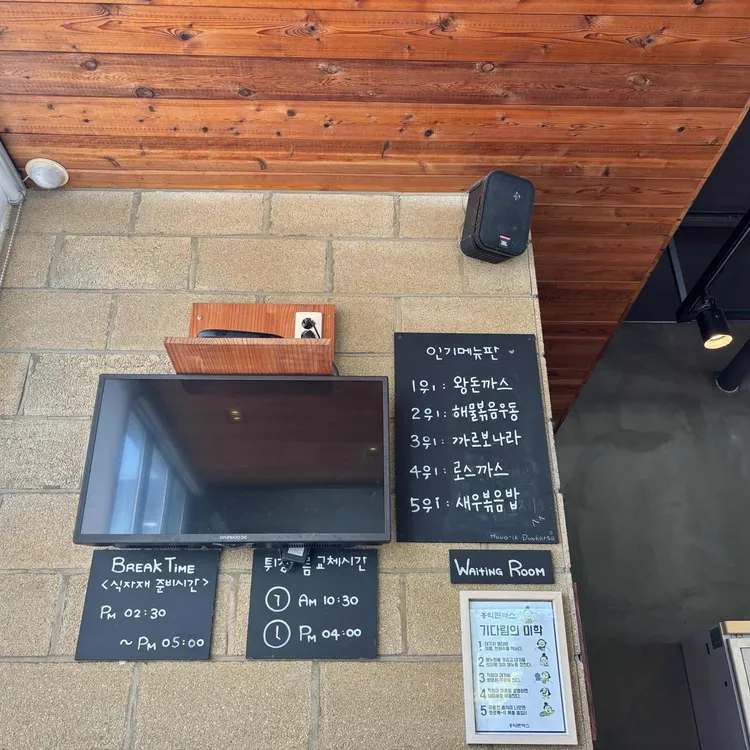 인기메뉴판
1위 : 왕돈까스
2위 : 해물볶음우동
3위 : 까르보나라
4위 : 로스까스
5위 : 새우볶음밥
JBL
DAEWOO
BREAK TIME
<식자재 준비시간>
PM 02:30
~ PM 05:00
튀김기름 교체시간
AM 10:30
PM 04:00
WAITING ROOM
기다림의 미학
1
2
3
4
5